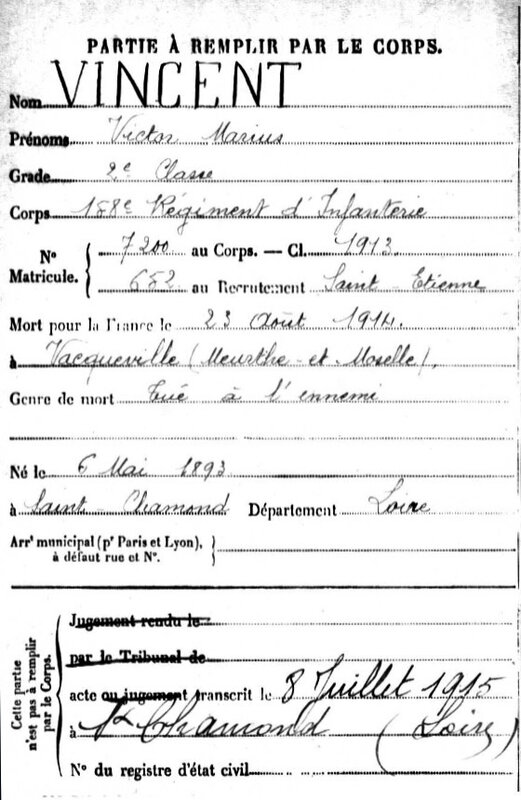 PARTIE À REMPLIR PAR LE CORPS.
Nom VINCENT
Prénoms Victor Marius
Grade 2e Classe
Corps 158e Régiment d'Infanterie
No Matricule. 7200 au Corps. — Cl. 1913.
652 au Recrutement Saint-Etienne
Mort pour la France le 23 Août 1914.
à Vacqueville (Meurthe-et-Moselle).
Genre de mort Tué à l'ennemi
Né le 6 Mai 1893
à Saint Chamond Département Loire
Arrt municipal (pr Paris et Lyon),
à défaut rue et No.
Cette partie
n'est pas à remplir
par le Corps.
Jugement rendu le
par le Tribunal de
acte ou jugement transcrit le 8 Juillet 1915
à St Chamond (Loire)
No du registre d'état civil